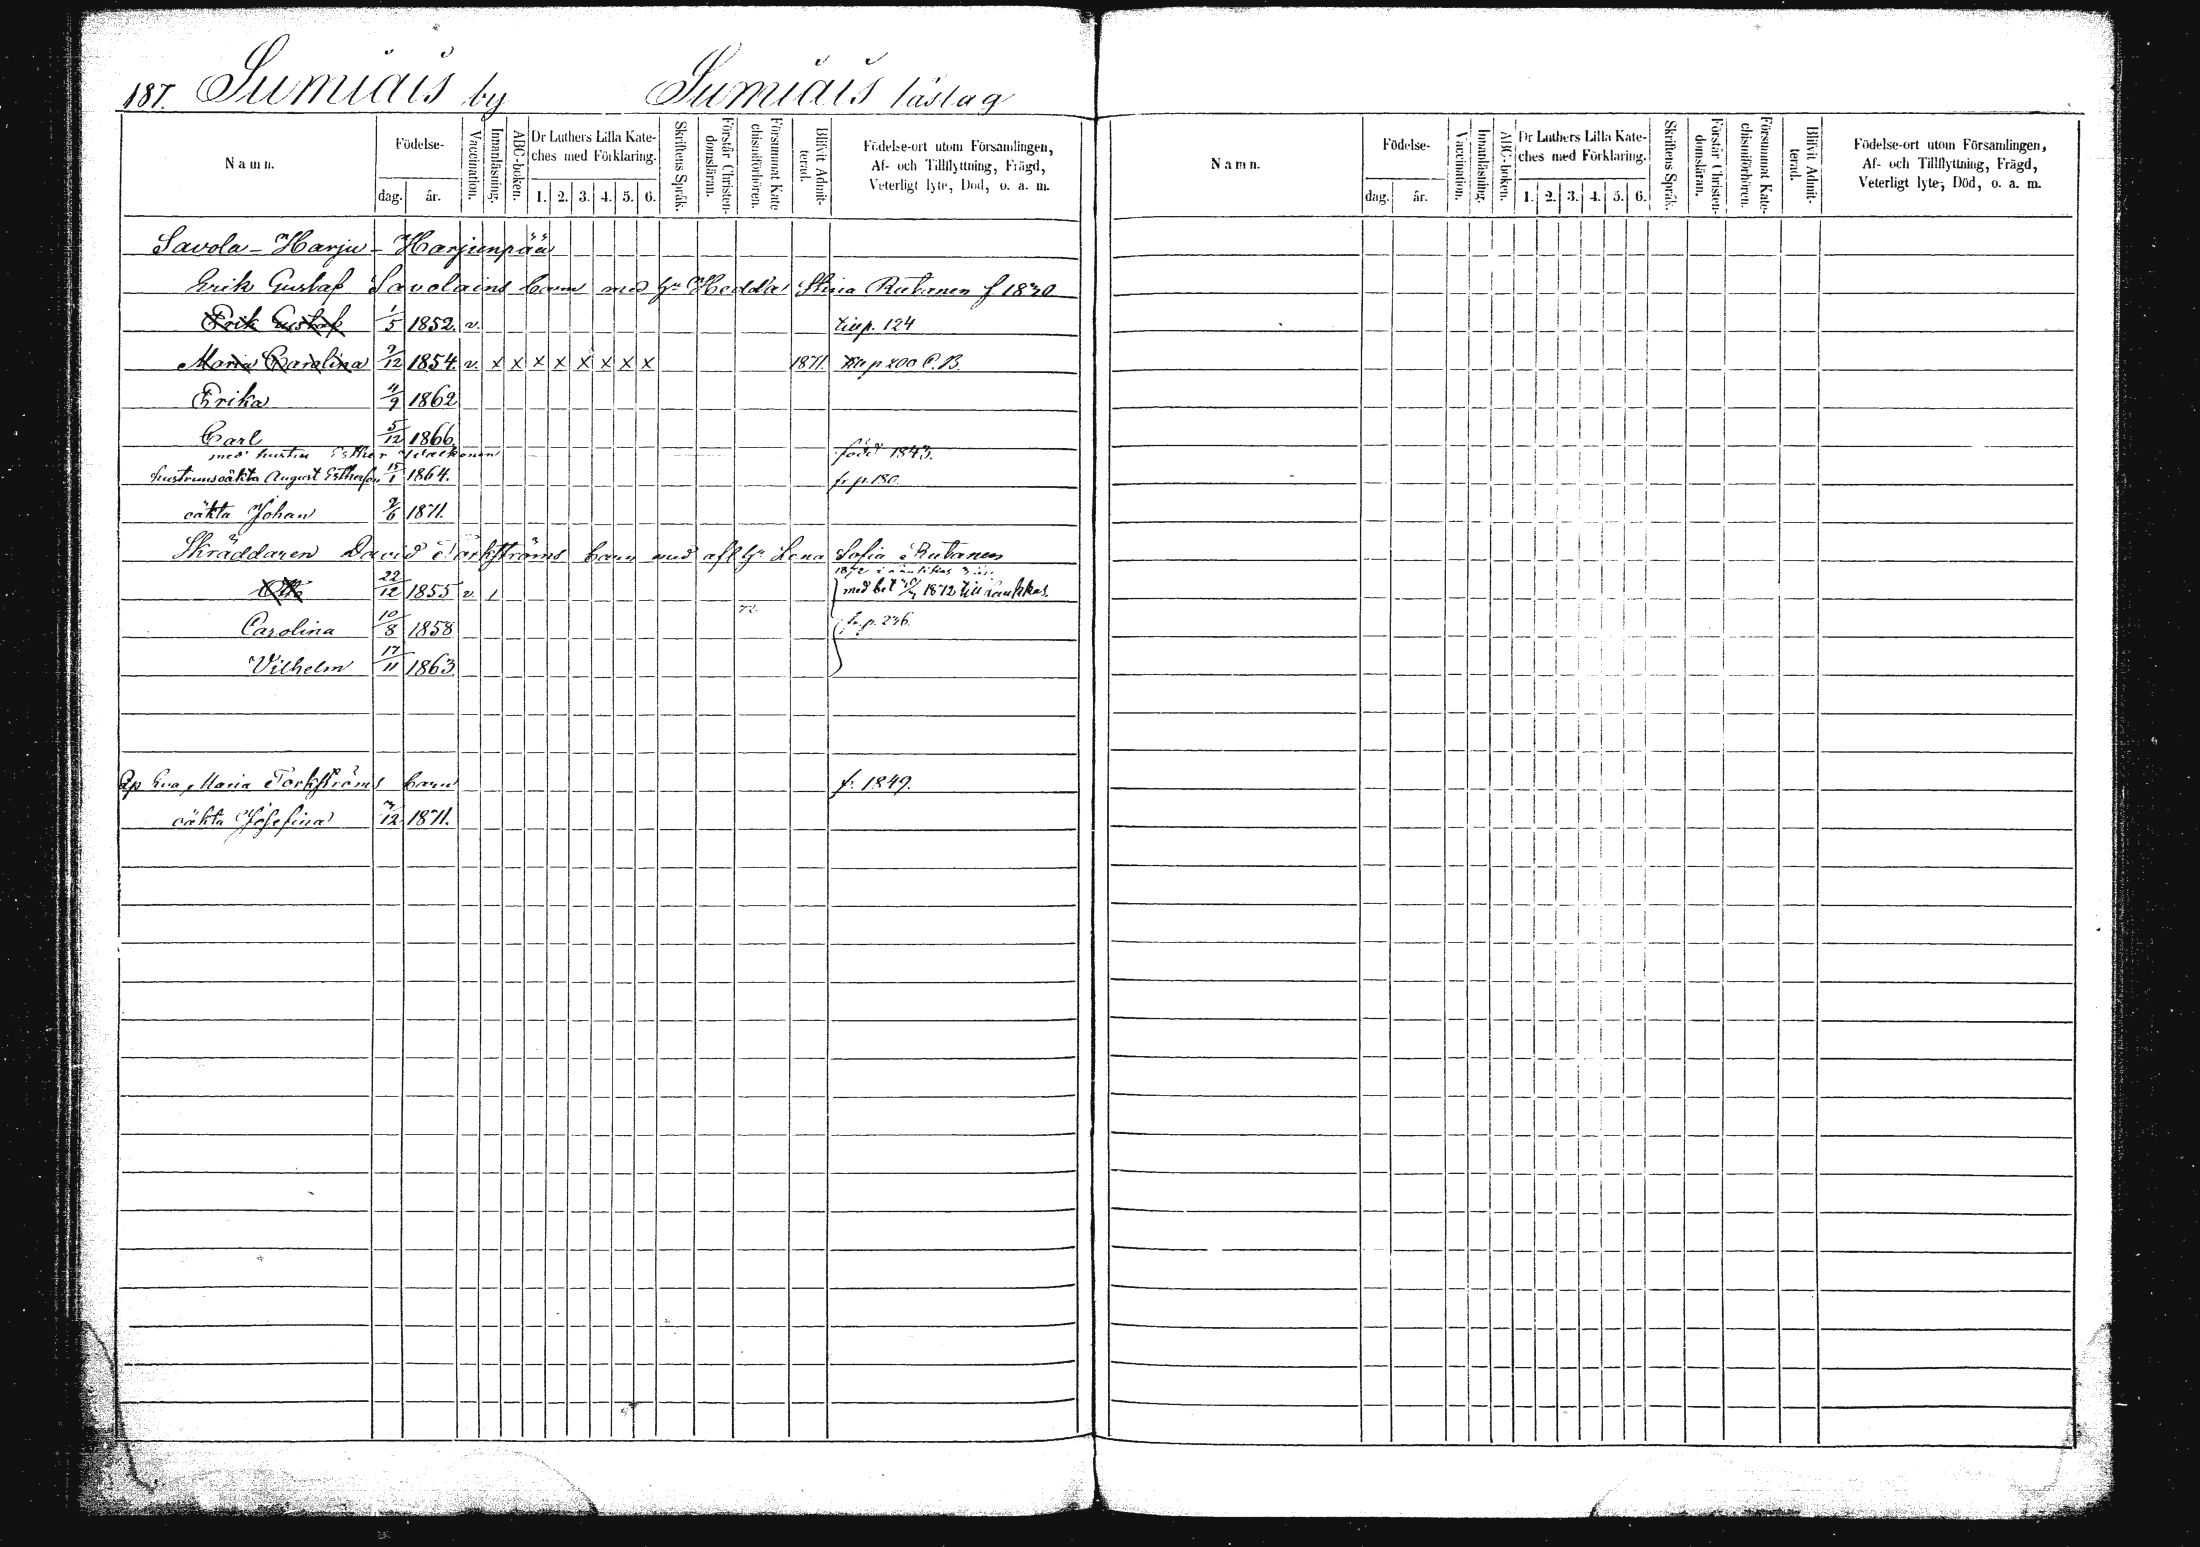 187. Sumiais by Sumiais läslag
Namn. Födelse- dag. år. Vaccination. Innanläsning. ABC-boken. Dr Luthers Lilla Kateches med Förklaring. 1. 2. 3. 4. 5. 6. Skriftens Språk. Förstår Christendomsläran. Försummat Katechismiförhören. Blifvit Admitterad. Födelse-ort utom Församlingen, Af- och Tillflyttning, Frägd, Veterligt lyte, Död, o. a. m.
Savola - Harju - Harjunpää
Erik Gustaf Savolains barn med h:u Hedda Stina Rutanen f 1830
Erik Gustaf 1/5 1852. v. till p. 124
Maria Carolina 9/12 1854. v. x x x x x x x x 1871. till p 200 C.B.
Erika 4/9 1862
Carl 5/12 1866
med hustru Esther född 1843.
hustruns oäkta August Esthersson 15/1 1864. fr. p. 180.
oäkta Johan 9/6 1871.
Skräddaren David Torkströms barn med afl h:u Lena Sofia Rutanen
Otto 22/12 1855 v. 1 med bet 1872 till Laukkas.
Carolina 10/8 1858 72. fr. p. 236.
Vilhelm 17/11 1863
Qp Eva Maria Torkströms barn f. 1849.
oäkta Josefina 3/12 1871.
Namn. Födelse- dag. år. Vaccination. Innanläsning. ABC-boken. Dr Luthers Lilla Kateches med Förklaring. 1. 2. 3. 4. 5. 6. Skriftens Språk. Förstår Christendomsläran. Försummat Katechismiförhören. Blifvit Admitterad. Födelse-ort utom Församlingen, Af- och Tillflyttning, Frägd, Veterligt lyte, Död, o. a. m.